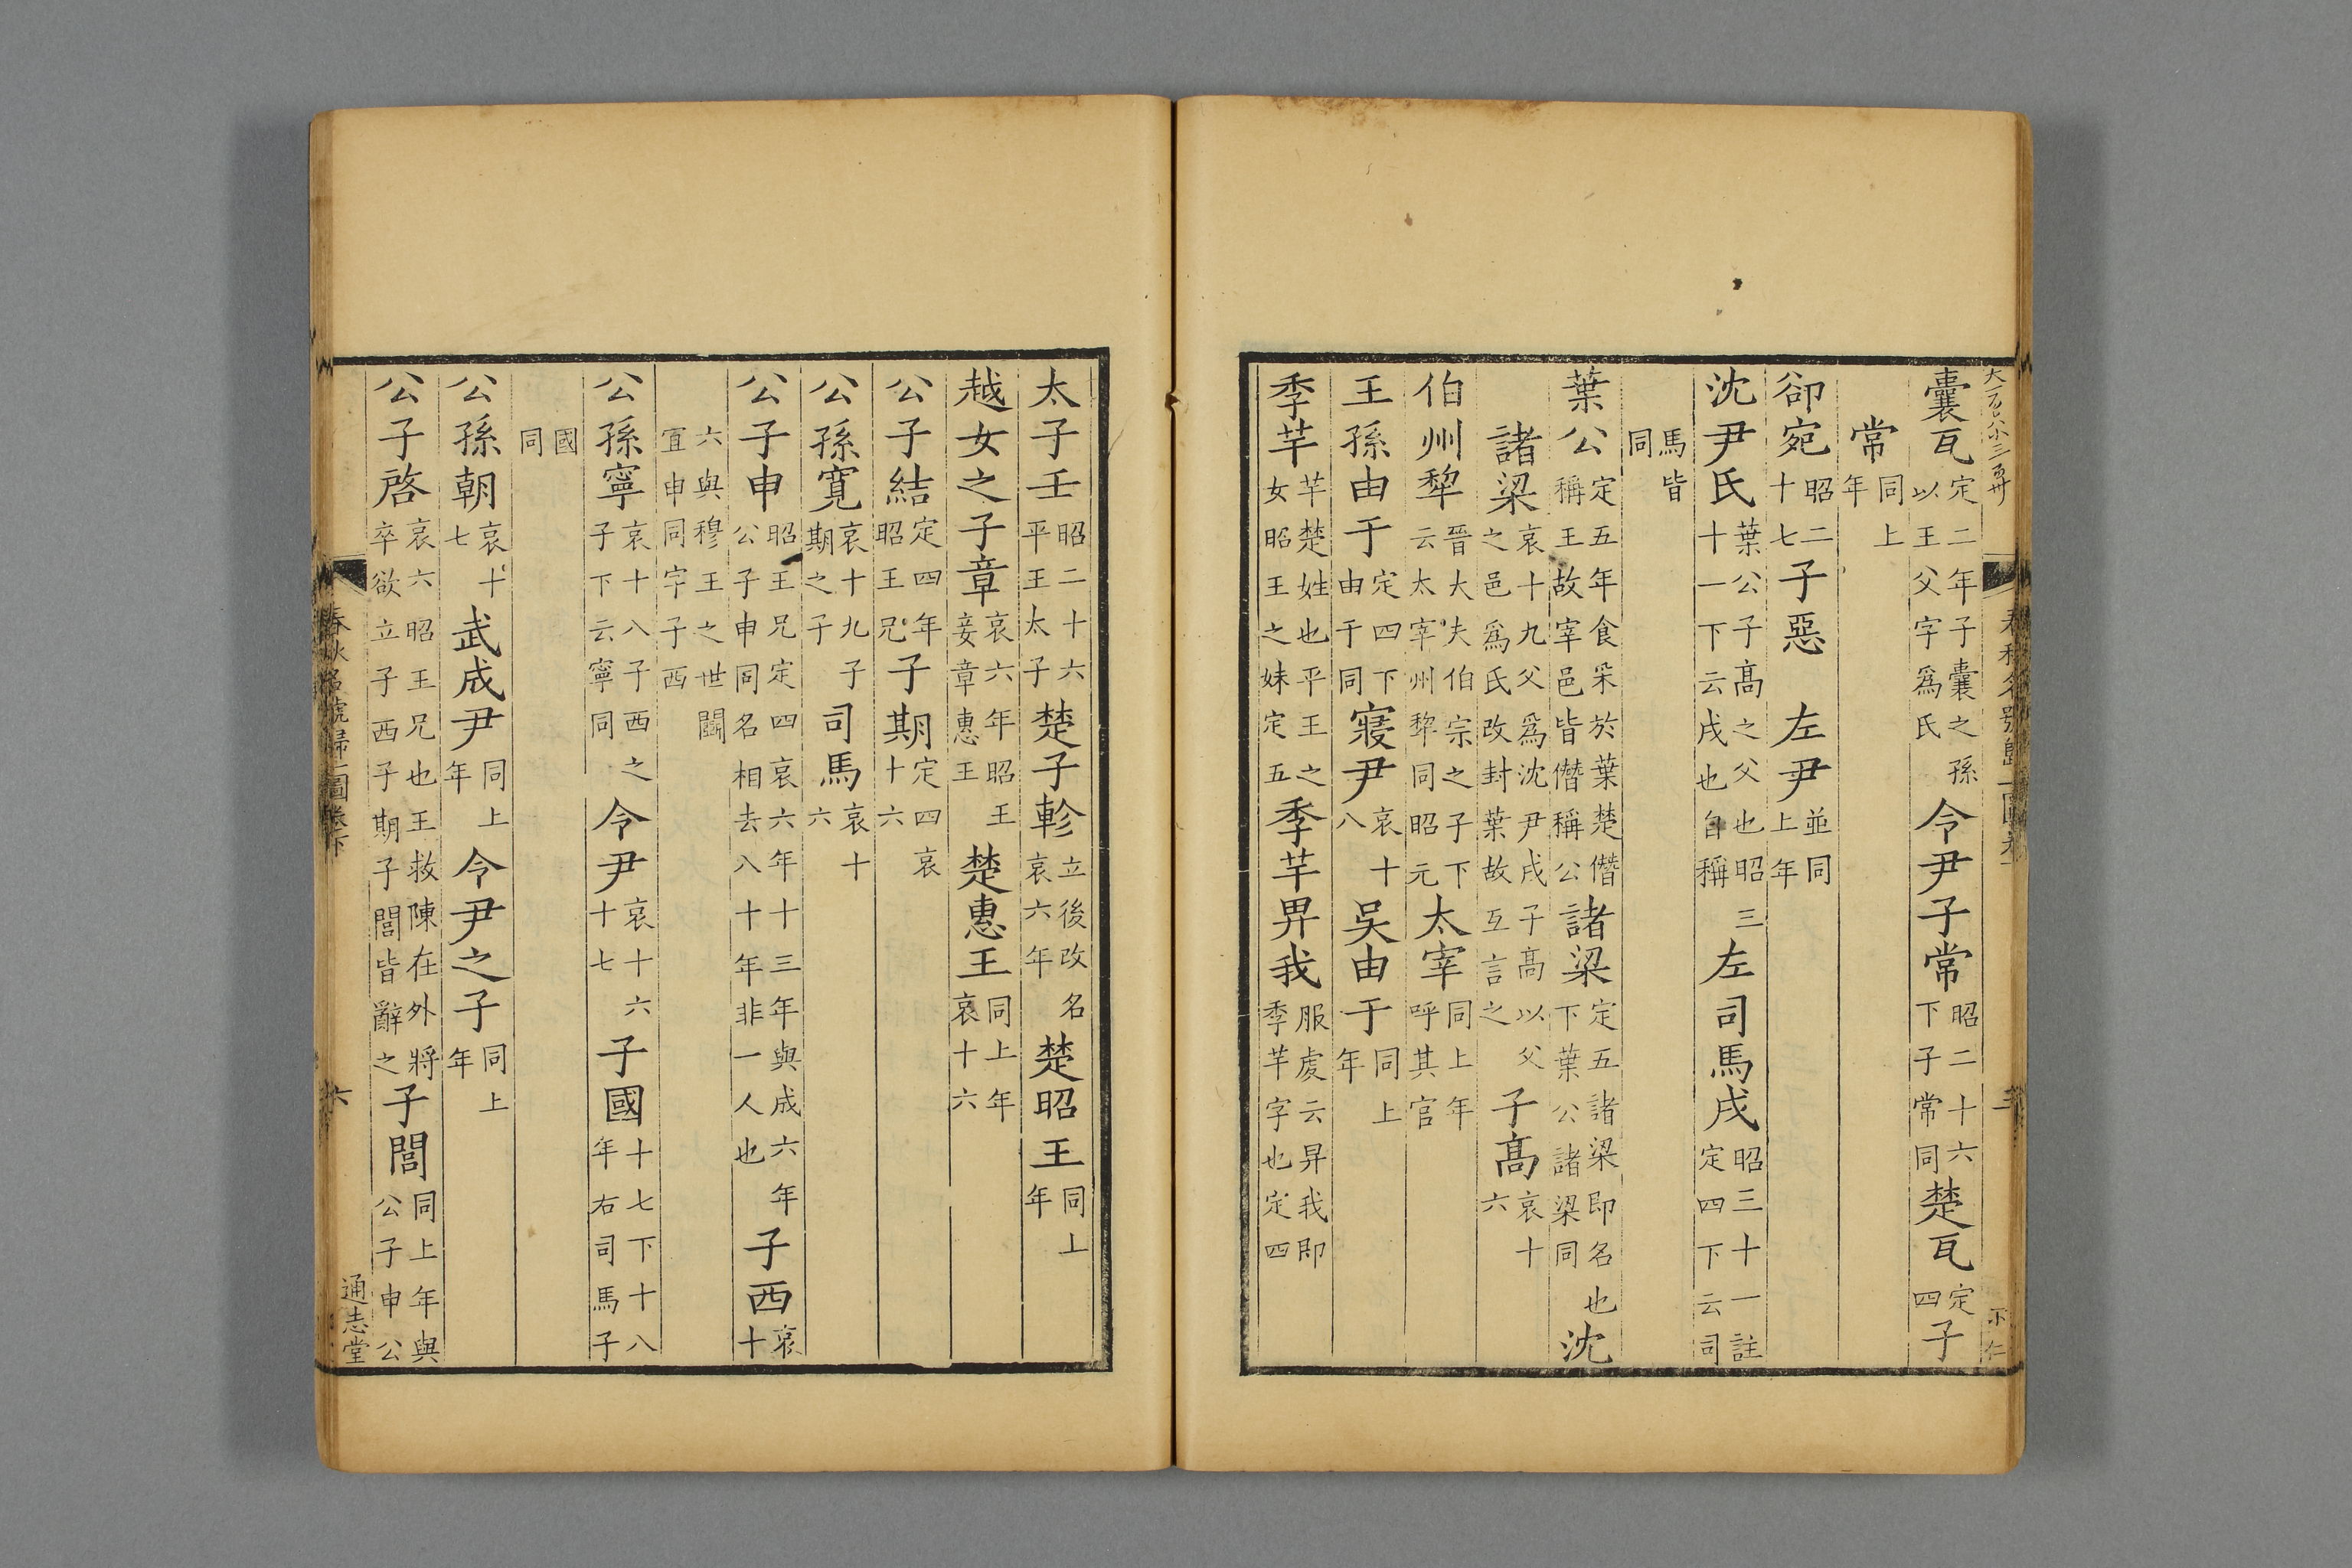 囊瓦定二年子囊之孫以王父字爲氏令尹子常昭二十六下子常同楚瓦定四子
常同上年
郤宛昭二十七子惡左尹並同上年
沈尹氏葉公子髙之父也昭三十一下云戌也自稱左司馬戌昭三十一註定四下云司
馬皆同
葉公定五年食采於葉楚僭稱王故宰邑皆僭稱公諸梁定五諸梁即名也下葉公諸梁同沈
諸梁哀十九父爲沈尹戌子髙以父之邑爲氏改封葉故互言之子髙哀十六
伯州犂晉大夫伯宗之子下云太宰州犂同昭元太宰同上年呼其官
王孫由于定四下由于同寢尹哀十八吳由于同上年
季芊芊楚姓也平王之女昭王之妹定五季芊畀我服虔云畀我即季芊字也定四
太子壬昭二十六平王太子楚子軫立後改名哀六年楚昭王同上年
越女之子章哀六年昭王妾章惠王楚惠王同上年哀十六
公子結定四年昭王兄子期定四哀十六
公孫寛哀十九子期之子司馬哀十六
公子申昭王兄定四哀六年十三年與成六年公子申同名相去八十年非一人也子西哀十
六與穆王之世鬭宜申同字子西
公孫寧哀十八子西之子下云寧同令尹哀十六十七子國十七下十八年右司馬子
國同
公孫朝哀十七武成尹同上年令尹之子同上年
公子啓哀六昭王兄也王救陳在外將卒欲立子西子期子閭皆辭之子閭同上年與公子申公
春秋名號歸一圖卷下
六
通志堂